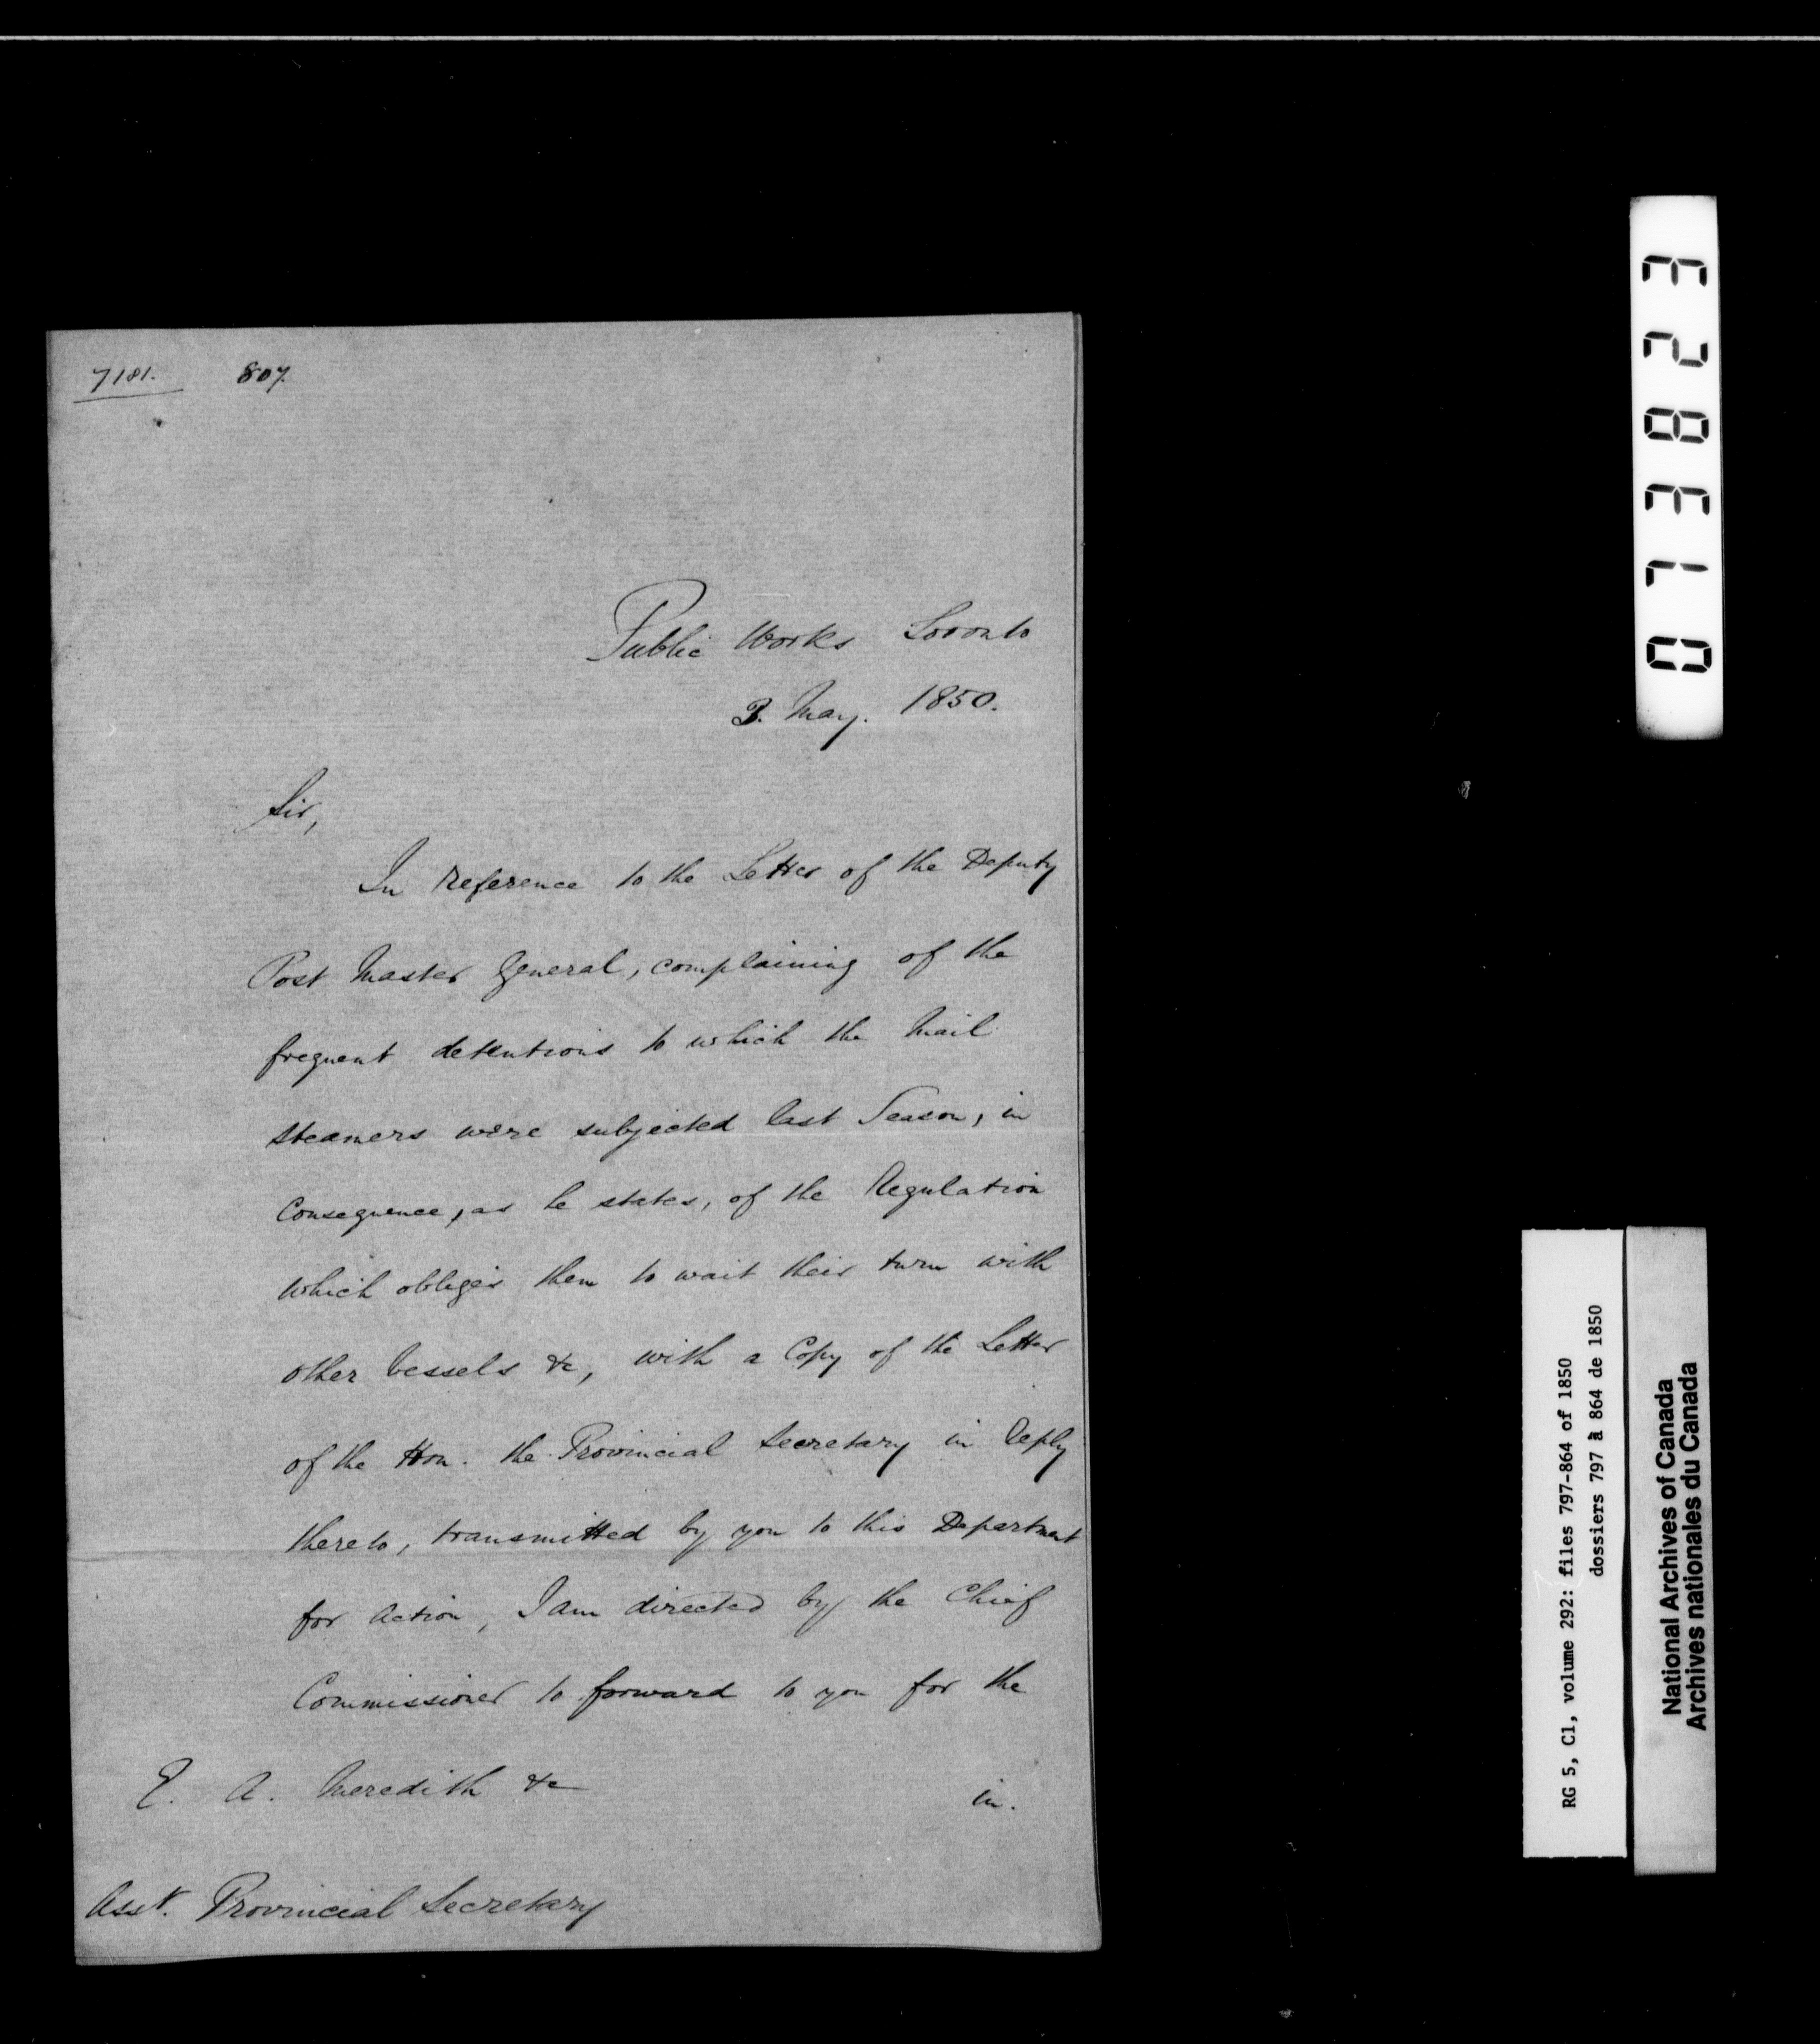 7181. 807.
Public Works Toronto
3. May. 1850.
Sir,
In Reference to the Letter of the Deputy
Post Master General, complaining of the
frequent detentions to which the Mail
steamers were subjected last Season, in
Consequence, as he states, of the Regulation
which obliges them to wait their turn with
other Vessels &c, with a Copy of the Letter
of the Hon. the Provincial Secretary in Reply
thereto, transmitted by you to this Department
for Action, I am directed by the Chief
Commissioner to forward to you for the
E. A. Meredith &c
in.
Asst. Provincial Secretary
013823
RG 5, C1, volume 292: files 797-864 of 1850
dossiers 797 à 864 de 1850
National Archives of Canada
Archives nationales du Canada